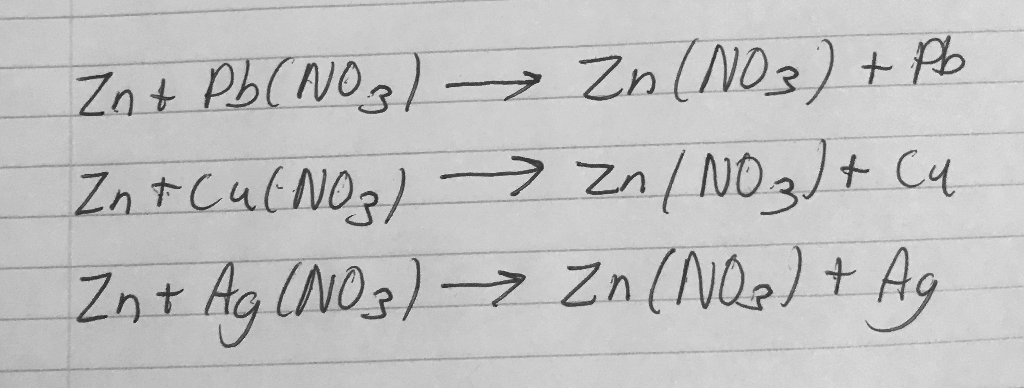 Zn + Pb(NO₃) → Zn(NO₃) + Pb
Zn + Cu(NO₃) → Zn(NO₃) + Cu
Zn + Ag(NO₃) → Zn(NO₃) + Ag